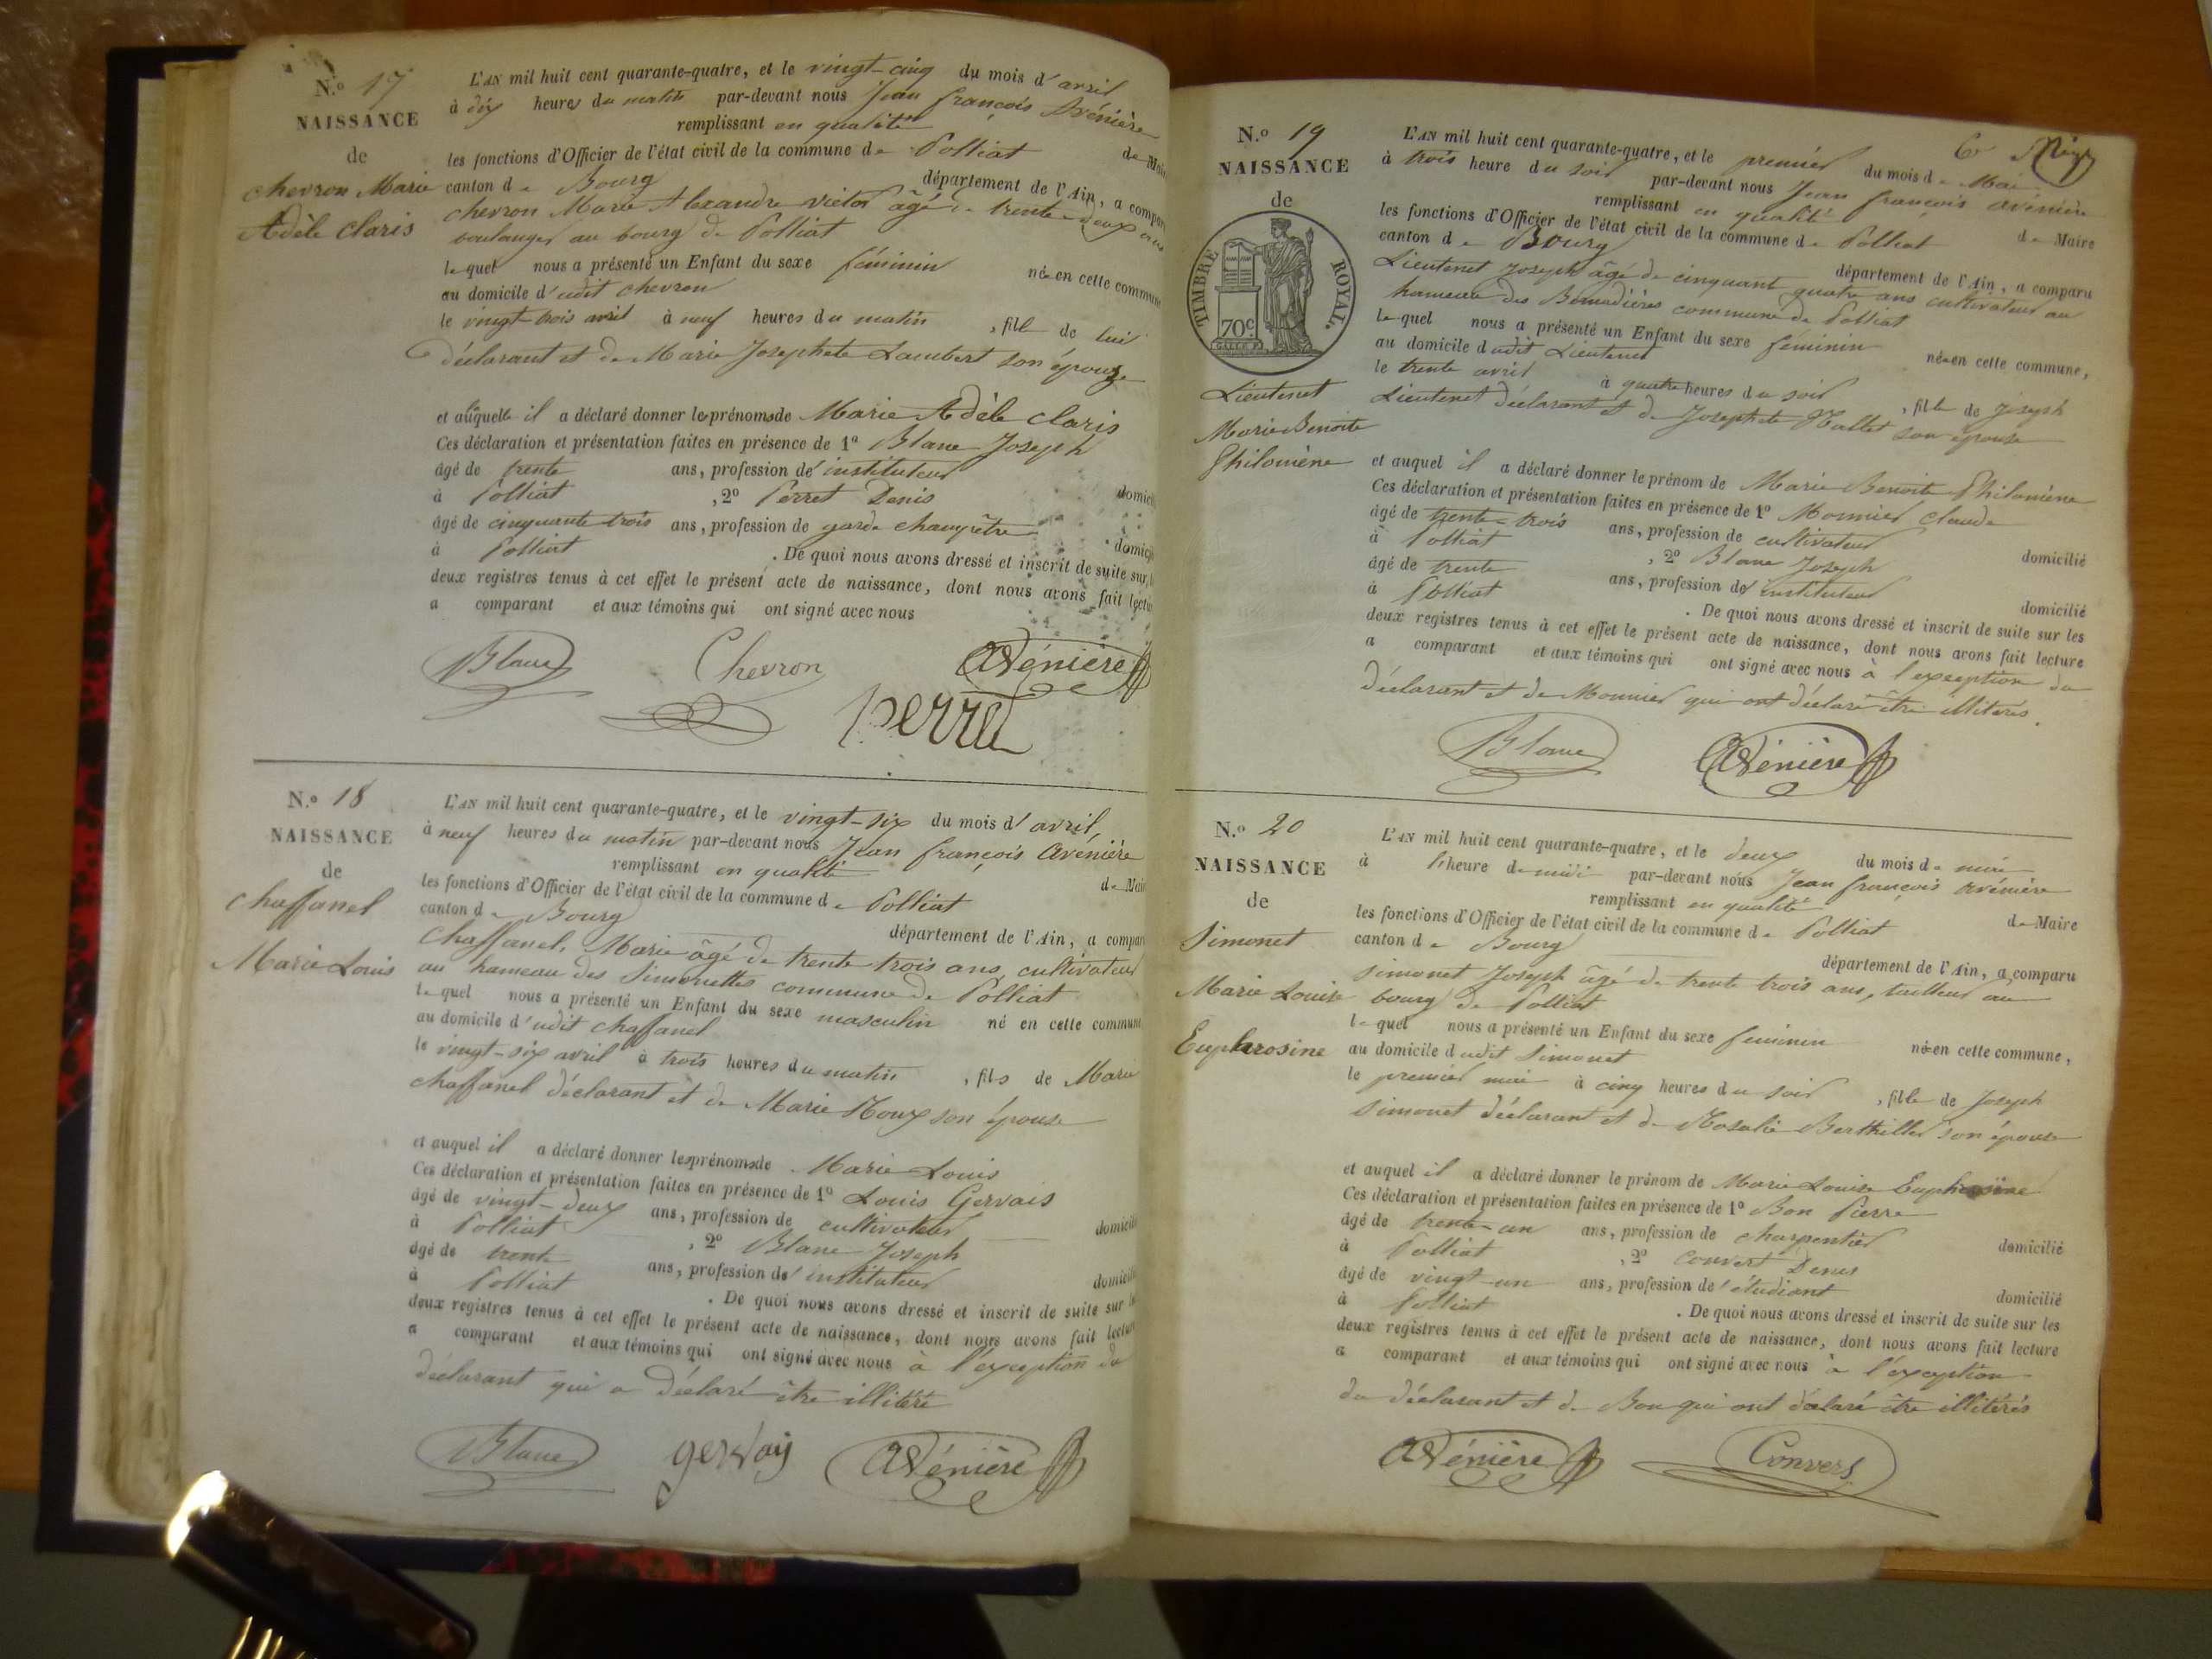 N.° 17
NAISSANCE
de
chevron Marie
Adèle Claris
L'AN mil huit cent quarante-quatre, et le vingt-cinq du mois d'avril
à dix heures du matin par-devant nous Jean françois Avénière
remplissant en qualité de Mai
les fonctions d'Officier de l'état civil de la commune de Polliat
canton de Bourg département de l'Ain, a compar
chevron Marie Alexandre victor âgé de trente deux ans
boulanger au bourg de Polliat
lequel nous a présenté un Enfant du sexe féminin née en cette commune
au domicile d'udit chevron
le vingt-trois avril à neuf heures du matin , fille de lui
déclarant et de Marie Josephete Lambert son épouse
et auquelle il a déclaré donner les prénoms de Marie Adèle Claris
Ces déclaration et présentation faites en présence de 1° Blanc Joseph
âgé de trente ans, profession d'instituteur domicil
à Polliat , 2° Perret Denis
âgé de cinquante trois ans, profession de garde champêtre domici
à Polliat . De quoi nous avons dressé et inscrit de suite sur l
deux registres tenus à cet effet le présent acte de naissance, dont nous avons fait lectu
a comparant et aux témoins qui ont signé avec nous
Blanc Chevron Avénière
perret
N.° 18
NAISSANCE
de
Chaffanel
Marie Louis
L'AN mil huit cent quarante-quatre, et le vingt-six du mois d'avril,
à neuf heures du matin par-devant nous Jean françois Avénière
remplissant en qualité de Mai
les fonctions d'Officier de l'état civil de la commune de Polliat
canton de Bourg département de l'Ain, a compar
Chaffanel, Marie âgé de trente trois ans, cultivateur
au hameau des Simonettes commune de Polliat
lequel nous a présenté un Enfant du sexe masculin né en cette commune
au domicile d'udit chaffanel
le vingt-six avril à trois heures du matin , fils de Marie
chaffanel déclarant et de Marie Roux son épouse
et auquel il a déclaré donner les prénoms de Marie Louis
Ces déclaration et présentation faites en présence de 1° Louis Gervais
âgé de vingt-deux ans, profession de cultivateur domicili
à Polliat , 2° Blanc Joseph
âgé de trente ans, profession d'instituteur domicili
à Polliat . De quoi nous avons dressé et inscrit de suite sur l
deux registres tenus à cet effet le présent acte de naissance, dont nous avons fait lectur
a comparant et aux témoins qui ont signé avec nous à l'exception du
déclarant qui a déclaré être illitéré
Blanc gervais Avénière
6
N.° 19
NAISSANCE
de
TIMBRE ROYAL.
70c
Lieutenet
Marie Benoite
Philomène
L'AN mil huit cent quarante-quatre, et le premier du mois de Mai
à trois heure du soir par-devant nous Jean françois avénière
remplissant en qualité de Maire
les fonctions d'Officier de l'état civil de la commune de Polliat
canton de Bourg département de l'Ain, a comparu
Lieutenet Joseph âgé de cinquant quatre ans cultivateur au
hameau des Bernadières commune de Polliat
lequel nous a présenté un Enfant du sexe féminin née en cette commune,
au domicile dudit Lieutenet
le trente avril à quatre heures du soir , fille de Joseph
Lieutenet déclarant et de Josephete Mallet son épouse
et auquel il a déclaré donner le prénom de Marie Benoite Philomène
Ces déclaration et présentation faites en présence de 1° Monnier Claude
âgé de trente-trois ans, profession de cultivateur domicilié
à Polliat , 2° Blanc Joseph
âgé de trente ans, profession d'instituteur domicilié
à Polliat . De quoi nous avons dressé et inscrit de suite sur les
deux registres tenus à cet effet le présent acte de naissance, dont nous avons fait lecture
a comparant et aux témoins qui ont signé avec nous à l'exception du
déclarant et de Monnier qui ont déclaré être illiterés.
Blanc Avénière
N.° 20
NAISSANCE
de
Simonet
Marie Louise
Euphrosine
L'AN mil huit cent quarante-quatre, et le deux du mois de mai
à l'heure de midi par-devant nous Jean françois Avénière
remplissant en qualité de Maire
les fonctions d'Officier de l'état civil de la commune de Polliat
canton de Bourg département de l'Ain, a comparu
simonet Joseph âgé de trente trois ans, tailleur au
bourg de Polliat
lequel nous a présenté un Enfant du sexe féminin née en cette commune,
au domicile dudit Simonet
le premier mai à cinq heures du soir , fille de Joseph
simonet déclarant et de Rosalie Berthiller son épouse
et auquel il a déclaré donner le prénom de Marie Louise Euphrosine
Ces déclaration et présentation faites en présence de 1° Bon Pierre
âgé de trente-un ans, profession de charpentier domicilié
à Polliat , 2° Convert Denis
âgé de vingt-un ans, profession d'étudiant domicilié
à Polliat . De quoi nous avons dressé et inscrit de suite sur les
deux registres tenus à cet effet le présent acte de naissance, dont nous avons fait lecture
a comparant et aux témoins qui ont signé avec nous à l'exception
du déclarant et de Bon qui ont déclaré être illitérés
Avénière Convers